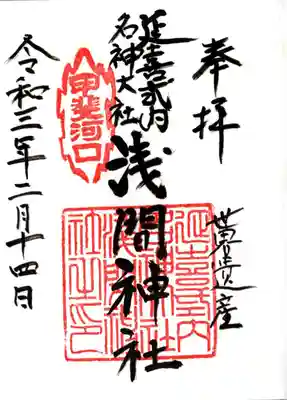 奉拝
世界遺産
延喜式内
名神大社
浅間神社
甲斐河口
令和三年二月十四日